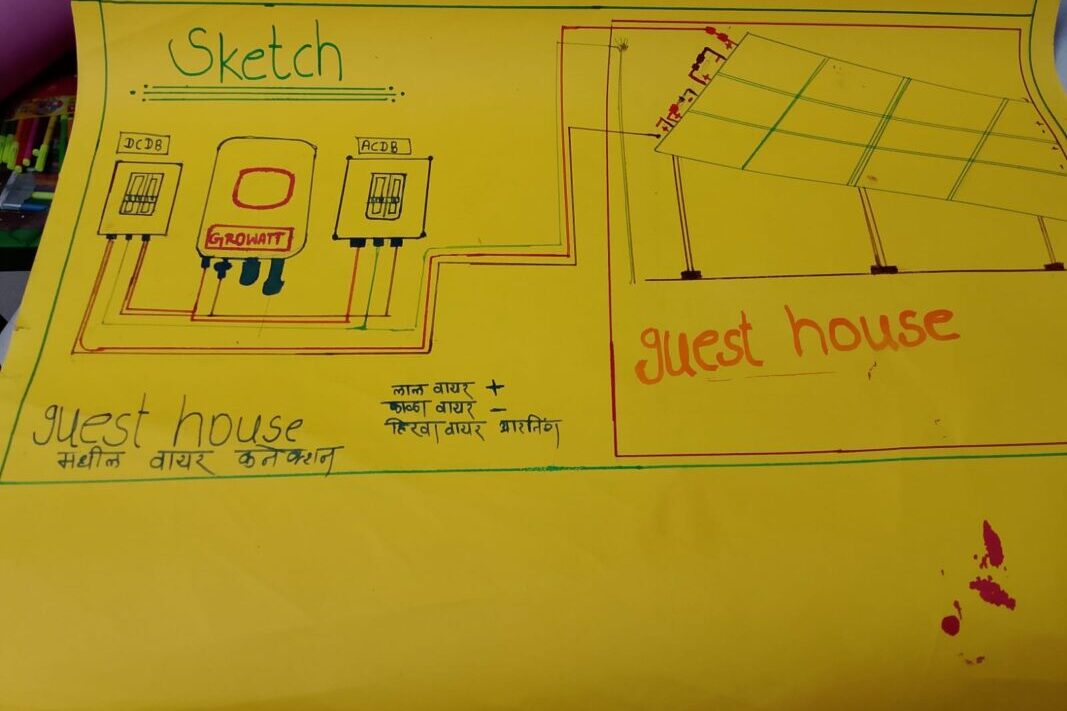 Sketch
DCDB
ACDB
GROWATT
guest house
मधील वायर कनेक्शन
लाल वायर +
काळा वायर -
हिरवा वायर आरतिंग
guest house